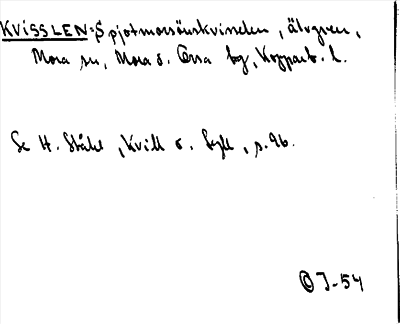 KVISSLEN: Spjotmorsönskvisslen, älvgren,
Mora sn, Mora o. Orsa tg, Kopparb. l.
Se H. Ståhl, Kvill o. Syll, s. 96.
© J-54